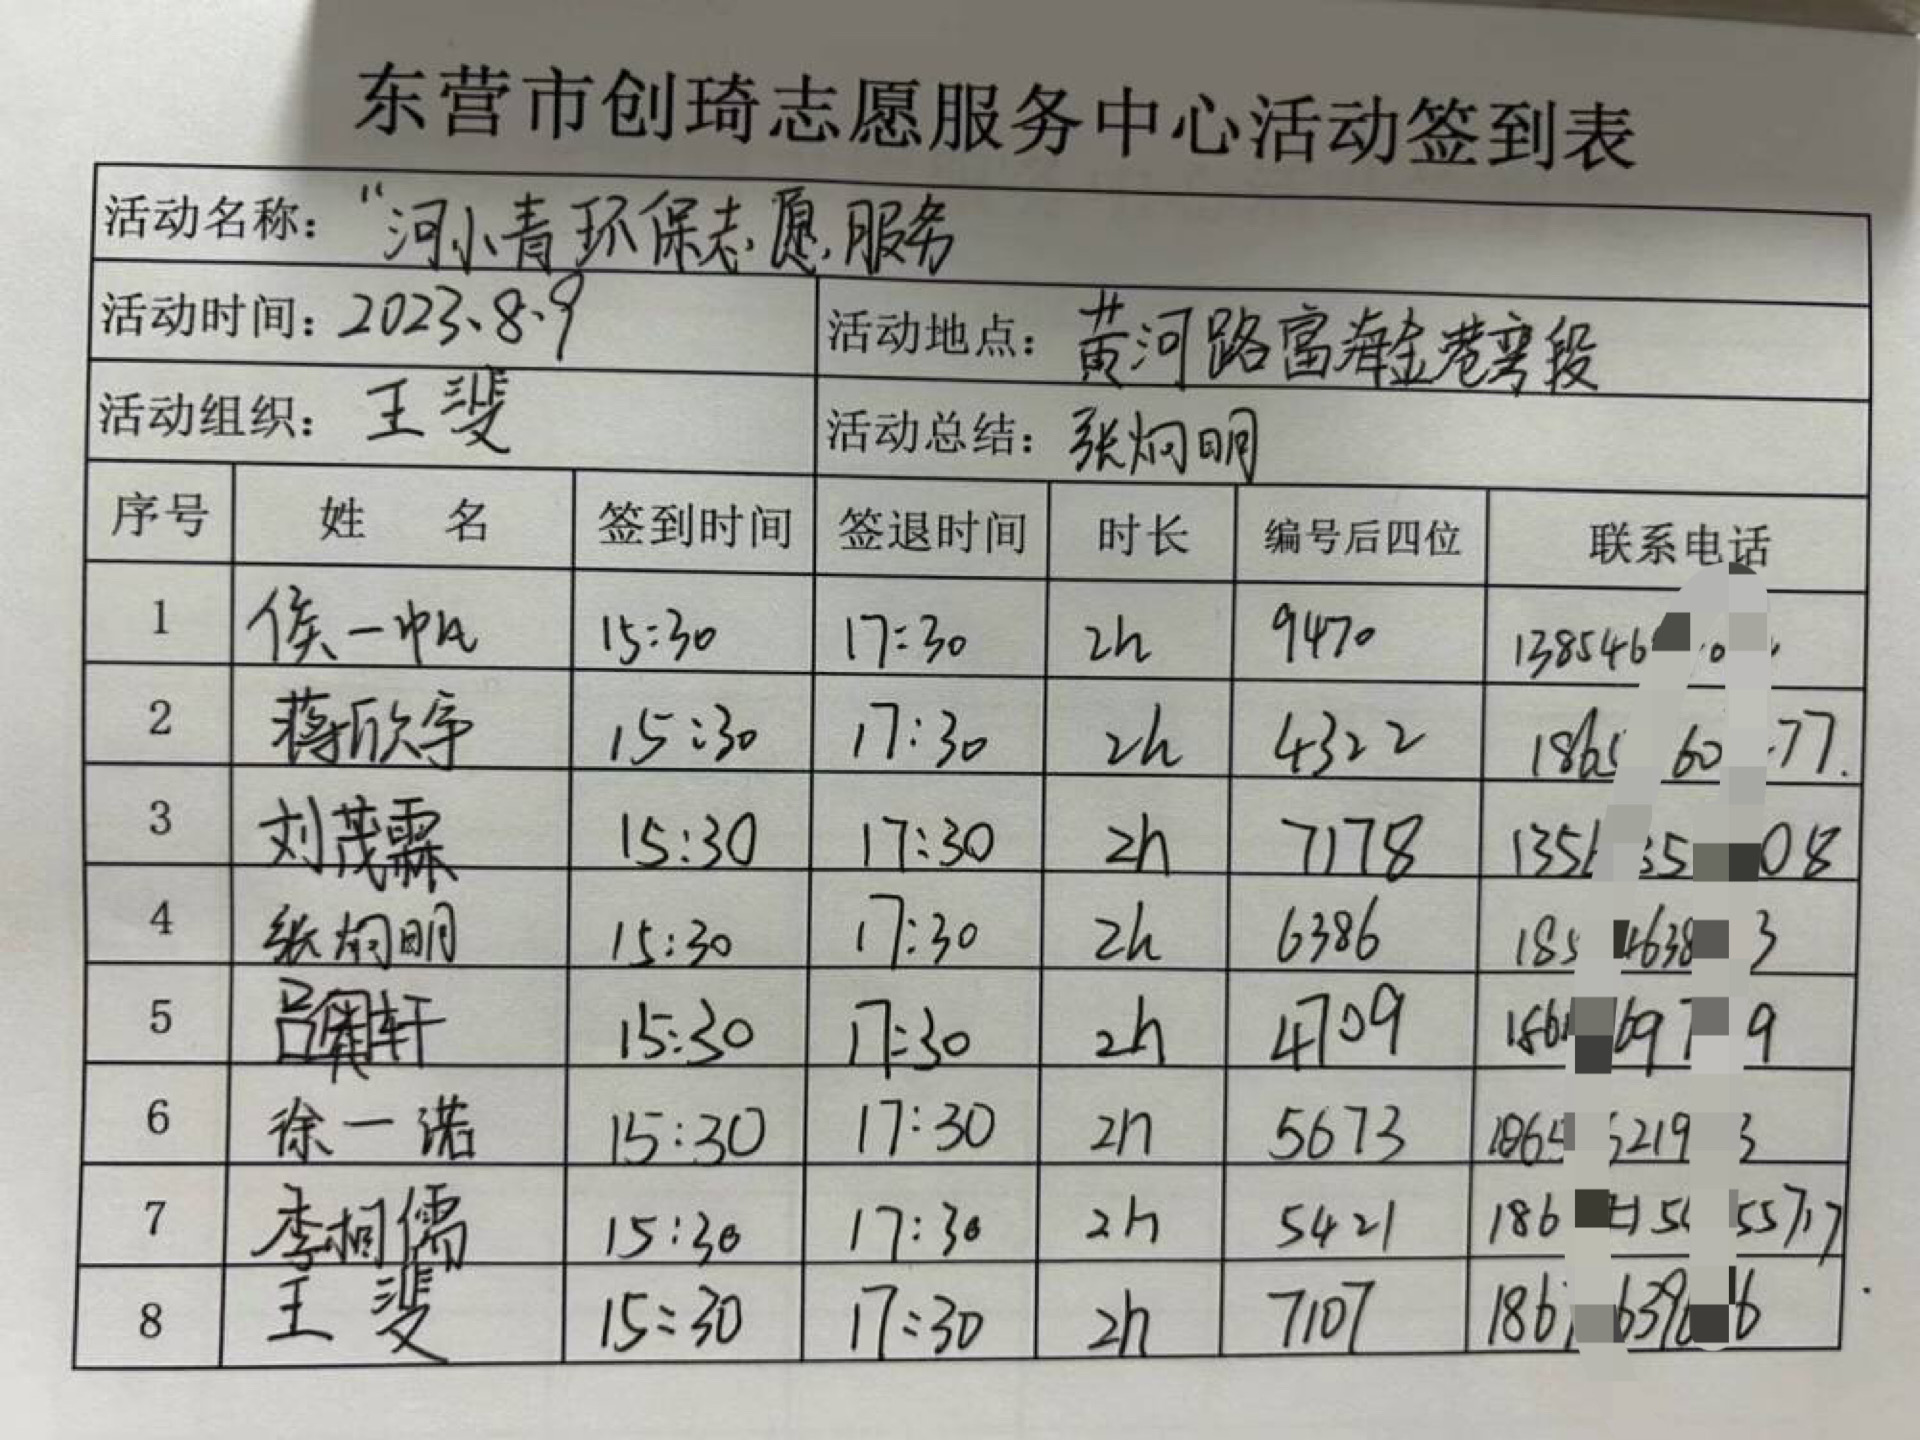 东营市创琦志愿服务中心活动签到表
活动名称：“河小青环保志愿服务
活动时间：2023、8、9 活动地点：黄河路富海金港湾段
活动组织：王斐 活动总结：张炯明
序号 姓 名 签到时间 签退时间 时长 编号后四位 联系电话
1 侯一帆 15:30 17:30 2h 9470 138546
2 蒋欣宇 15:30 17:30 2h 4322 186 60 77.
3 刘茂霖 15:30 17:30 2h 7178 135 08
4 张炯明 15:30 17:30 2h 6386 185 4638 3
5 吕 轩 15:30 17:30 2h 4709 186 697 9
6 徐一诺 15:30 17:30 2h 5673 1865 219 3
7 李桐儒 15:30 17:30 2h 5421 186 15 55717
8 王斐 15:30 17:30 2h 7107 186 639 6